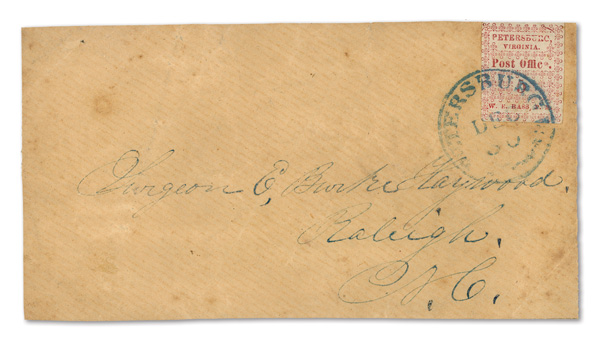 PETERSBURG,
VIRGINIA.
Post Office.
W. E. BASS
PETERSBURG
DEC
30
Surgeon E, Burke Haywood.
Raleigh.
N.C.